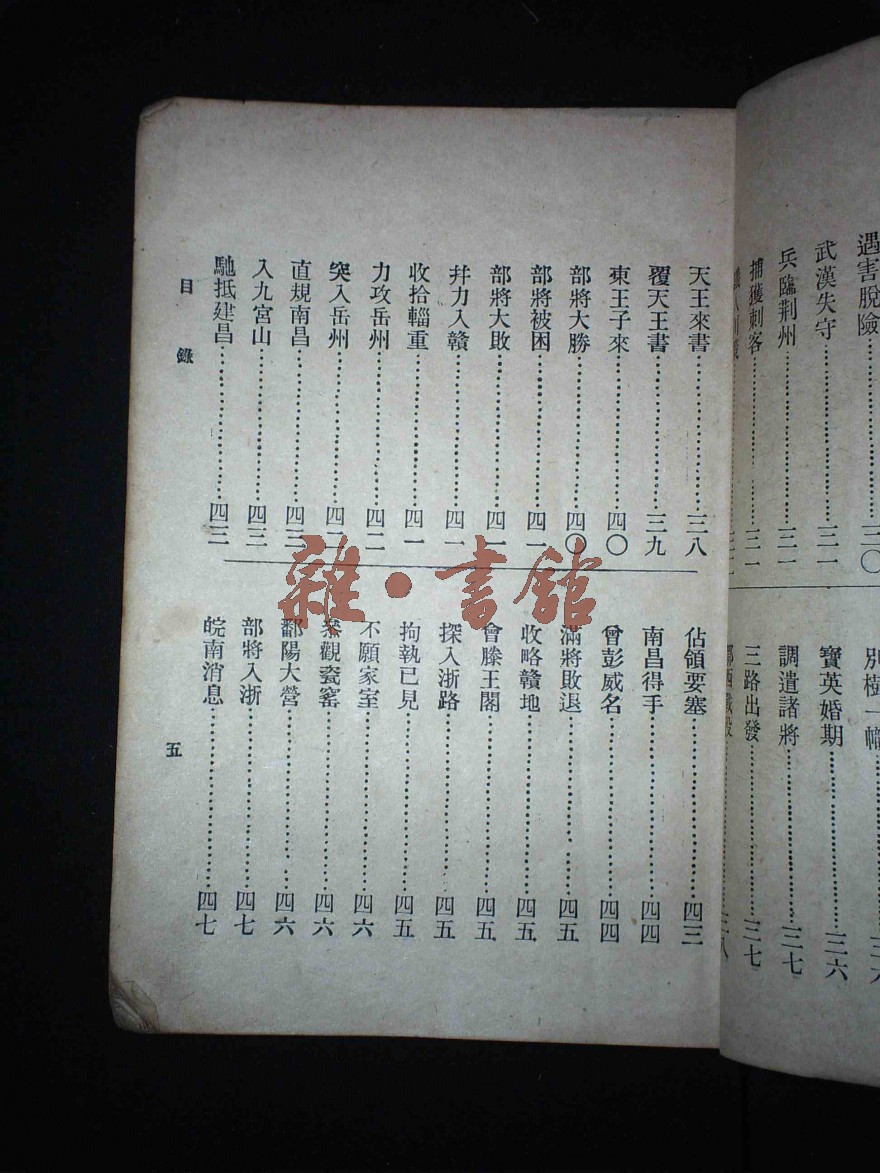 遇害脫險……三〇
武漢失守……三一
兵臨荆州……三一
捕獲刺客……三一
別樹一幟……三六
寶英婚期……三六
調遣諸將……三七
三路出發……三七
三八
天王來書……三八
覆天王書……三九
東王子來……四〇
部將大勝……四〇
部將被困……四一
部將大敗……四一
幷力入贛……四一
收拾輜重……四一
力攻岳州……四二
突入岳州……四二
直規南昌……四三
入九宮山……四三
馳抵建昌……四三
佔領要塞……四三
南昌得手……四四
曾彭威名……四四
滿將敗退……四五
收略贛地……四五
會滕王閣……四五
探入浙路……四五
拘執已見……四五
不願家室……四六
叅觀瓷窰……四六
鄱陽大營……四六
部將入浙……四七
皖南消息……四七
目錄
五
雜·書館